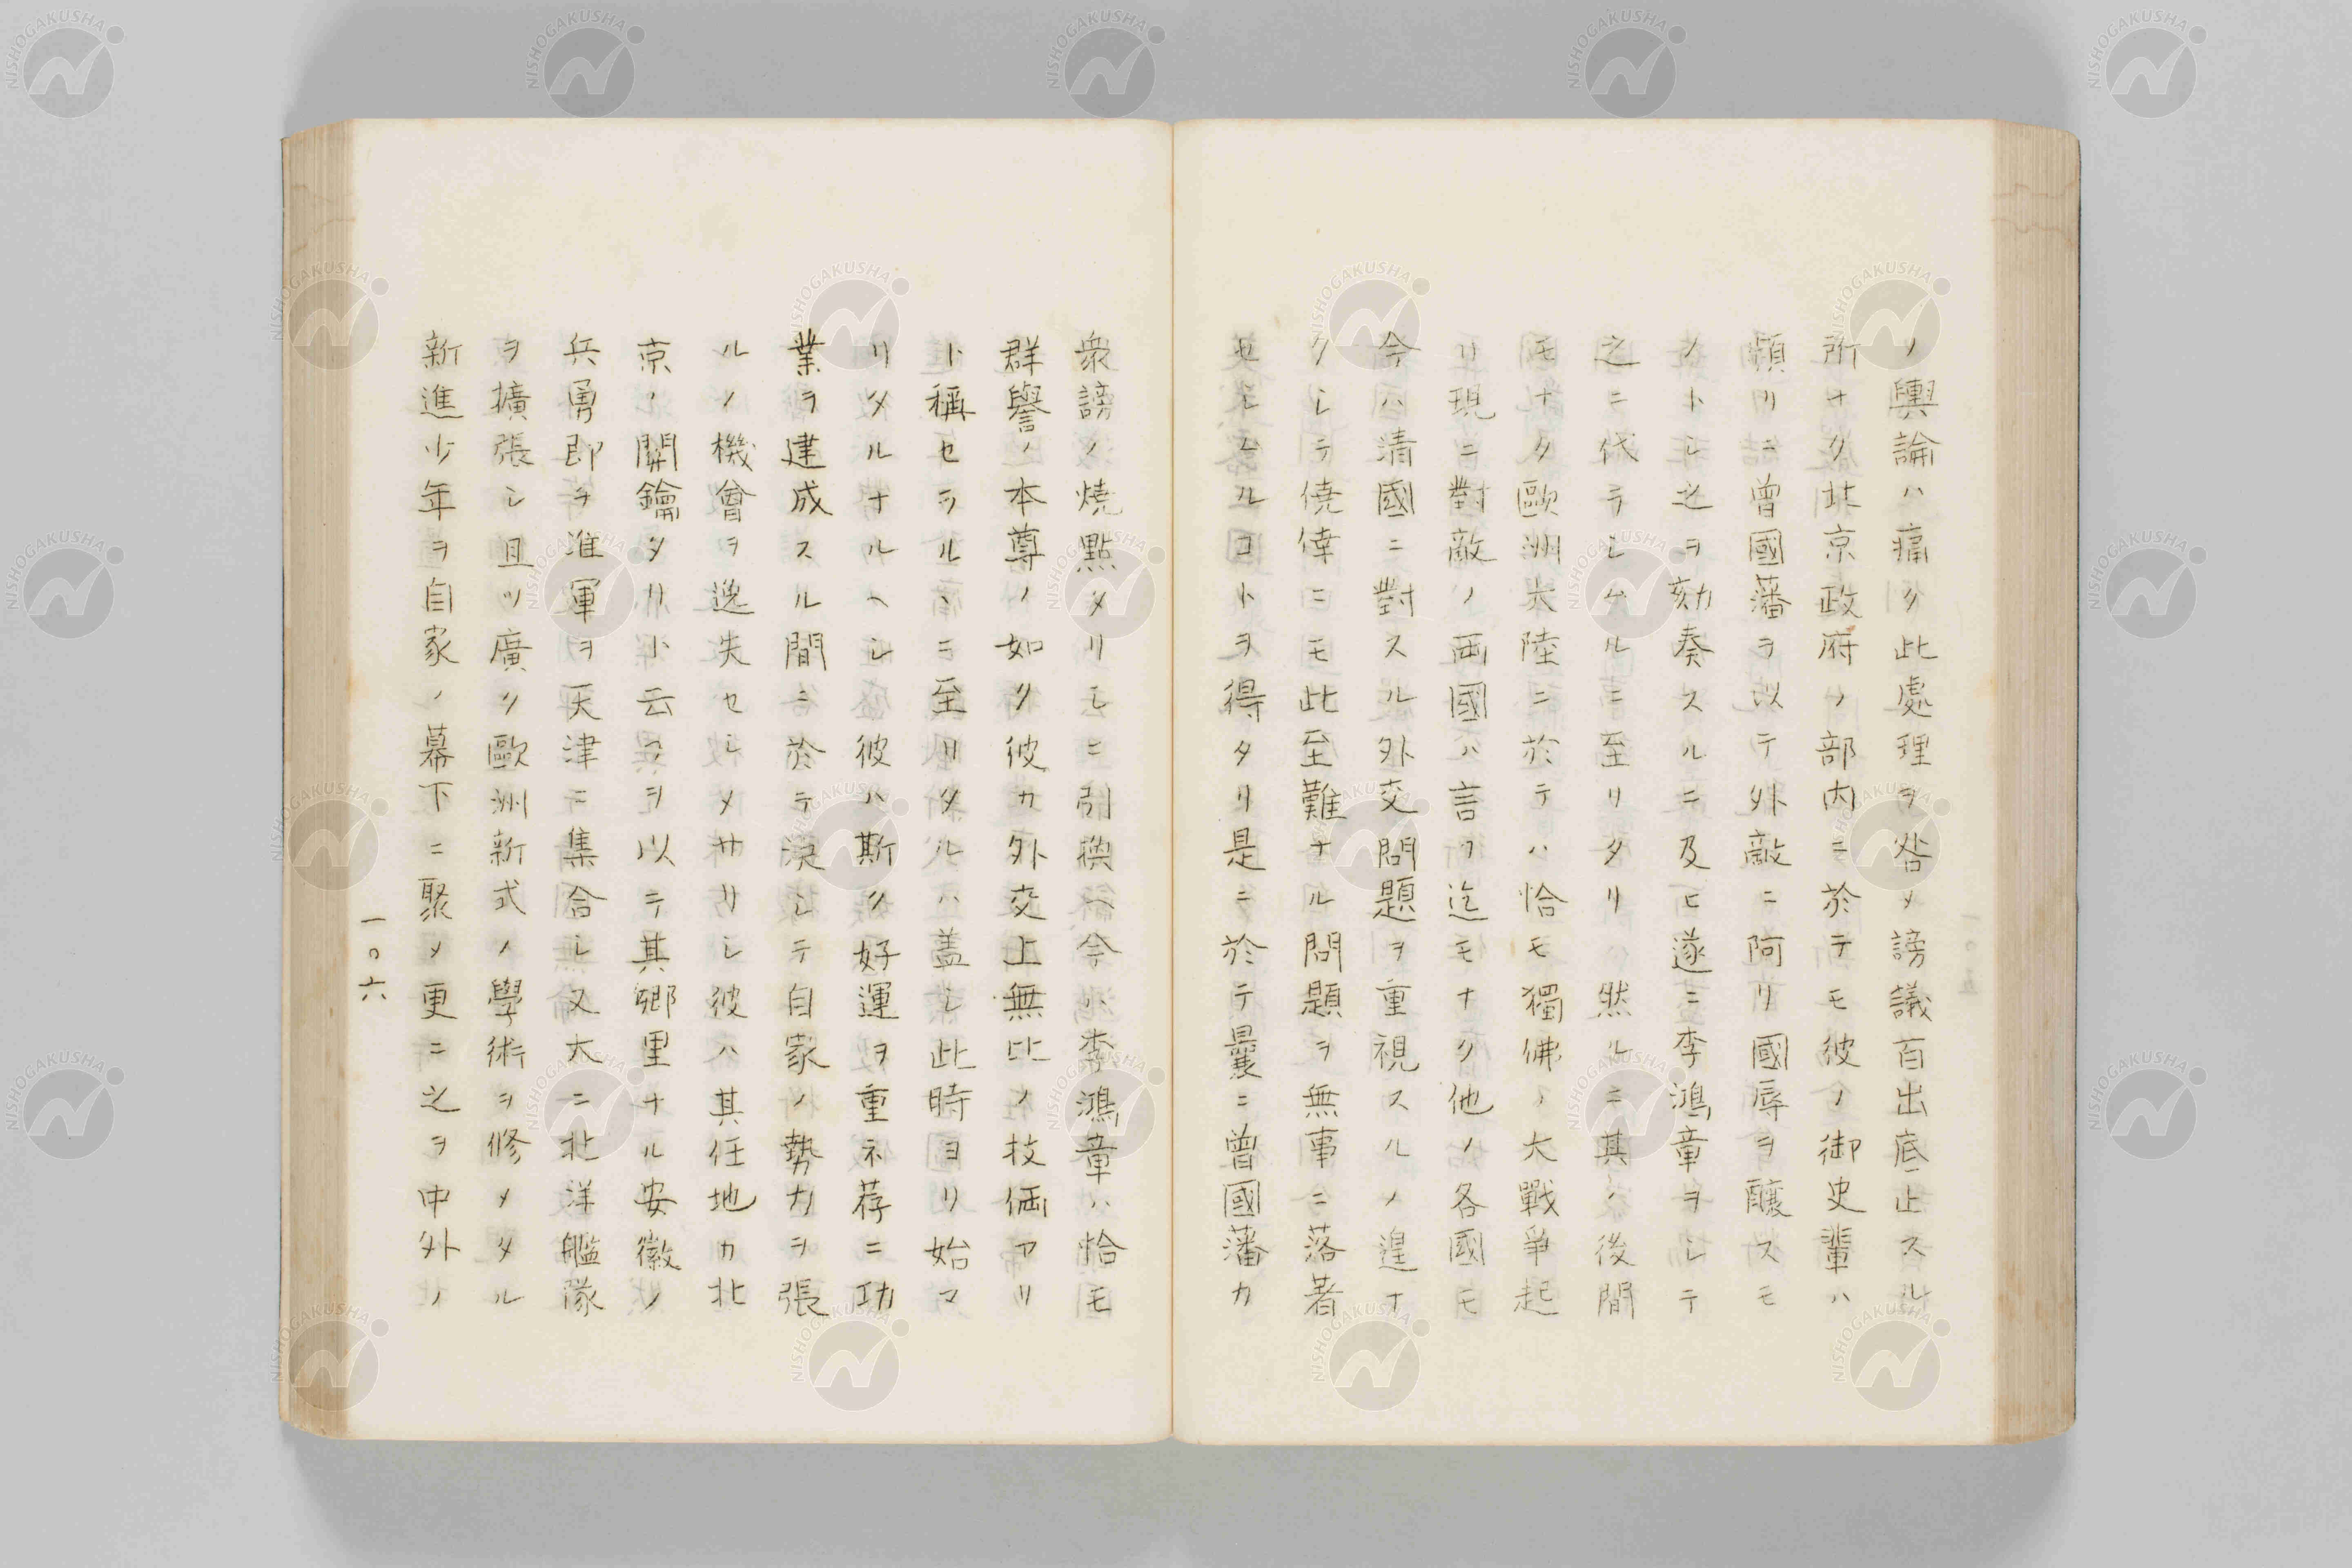 ノ輿論ハ痛ク此處理ヲ咎メ謗議百出底止スル
所ナク北京政府ノ部内ニ於テモ彼ノ御史輩ハ
頻リニ曾國藩ヲ以テ外敵ニ阿リ國辱ヲ釀スモ
ノトシ之ヲ劾奏スルニ及ヒ遂ニ李鴻章ヲシテ
之ニ代ラシムルニ至リタリ然ルニ其ノ後間
モナク歐洲大陸ニ於テハ恰モ獨佛ノ大戰爭起
リ現ニ對敵ノ兩國ハ言フ迄モナク他ノ各國モ
今ハ清國ニ對スル外交問題ヲ重視スルノ遑ナ
クシテ僥倖ニモ此至難ナル問題ヲ無事ニ落着
セシムルコトヲ得タリ是ニ於テ曩ニ曾國藩カ
衆謗ノ燒點タリモニ引換ヘ今ハ李鴻章ハ恰モ
群譽ノ本尊ノ如ク彼カ外交上無比ノ技倆アリ
ト稱セラルヽニ至リタルハ蓋シ此時ヨリ始マ
リタルナルヘシ彼ハ斯ク好運ヲ重ネ荐ニ功
業ヲ建成スル間ニ於テ決シテ自家ノ勢力ヲ張
ルノ機會ヲ逸失セシメサリシ彼ハ其任地カ北
京ノ關鑰タリト云フヲ以テ其郷里ナル安徽ノ
兵勇即チ淮軍ヲ天津ニ集合シ又大ニ北洋艦隊
ヲ擴張シ且ツ廣ク歐洲新式ノ學術ヲ修メタル
新進少年ヲ自家ノ幕下ニ聚メ更ニ之ヲ中外ノ
一〇六
NISHOGAKUSHA